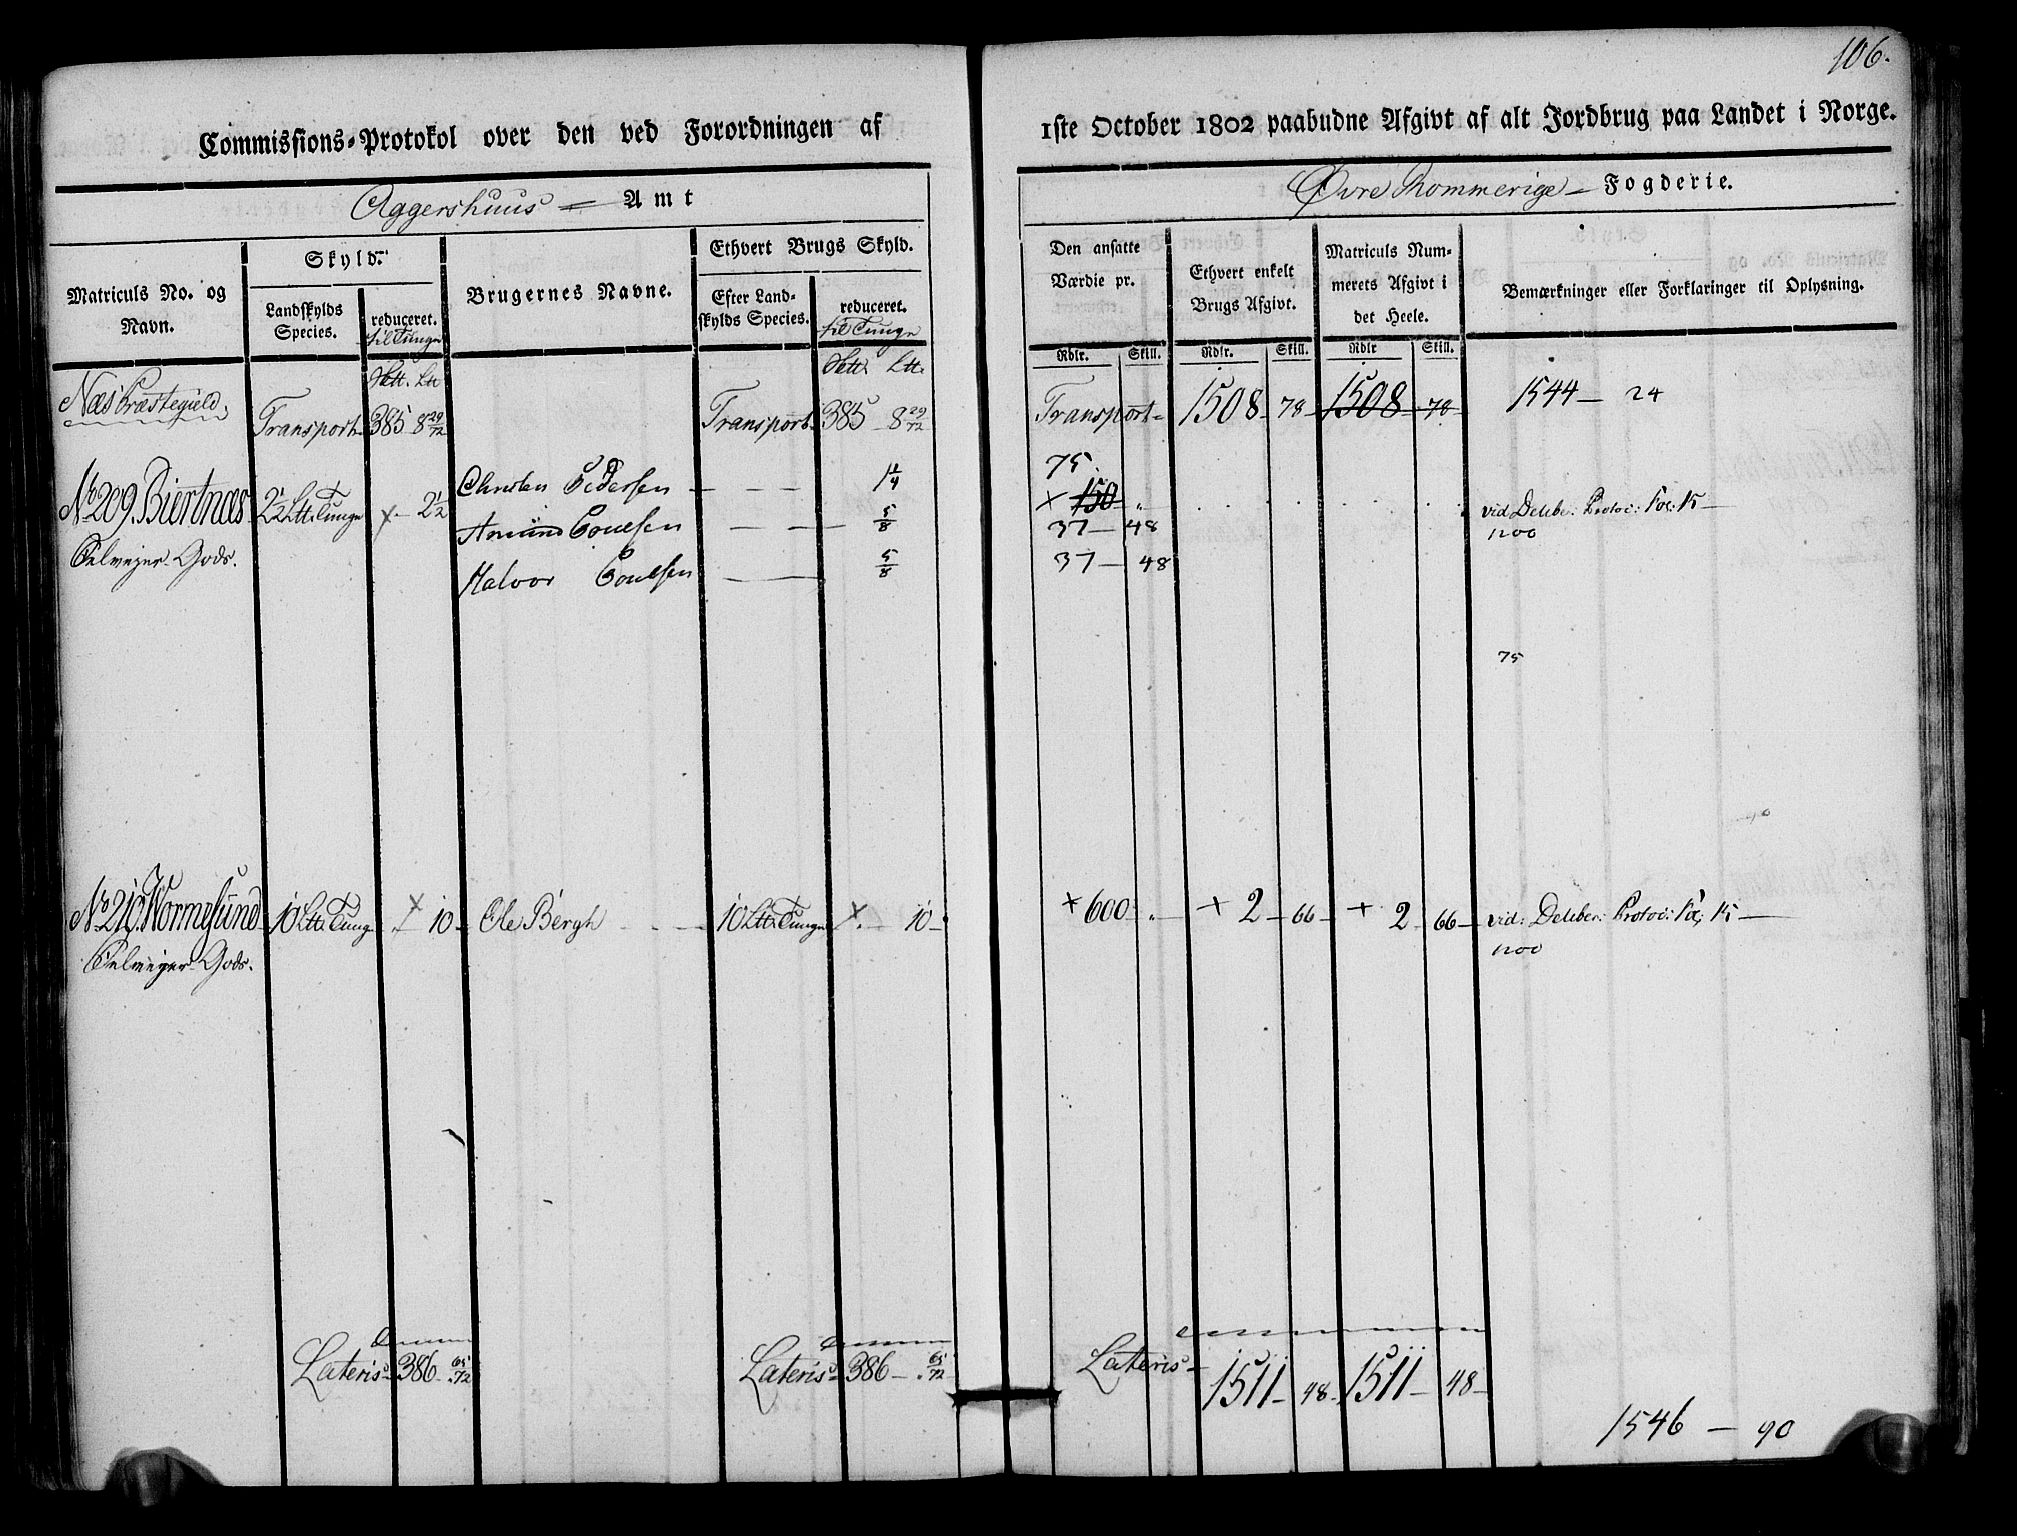 106.
Commissions-Protokol over den ved Forordningen af
1ste October 1802 paabudne Afgivt af alt Jordbrug paa Landet i Norge.
Aggershuus Amt
Øvre Rommerige Fogderie.
Matriculs No. og Navn.
Skyld.
Landskylds Species.
reduceret. til Tunge
Brugernes Navne.
Ethvert Brugs Skyld.
Efter Landskylds Species.
reduceret. til Tunge
Den ansatte Værdie pr.
Ethvert enkelt Brugs Afgivt.
Matriculs Nummerets Afgivt i det Heele.
Bemærkninger eller Forklaringer til Oplysning.
Rdlr. Skill. Rdlr. Skill. Rdlr Skill.
Næs Præstegield,
Transport 385 8 29/72 Transport 385 8 29/72 Transport 1508 78 1508 78 1544 24
75.
No 209. Biertnæs 2 1/2 Ltt: Tunge × 2 1/2 Christen Pedersen 1 1/4 × 150 vid Deliber: Protoc: Fol: 15
Amund Poulsen 5/8 37 48 1200
Selveyer Gods. Halvor Poulsen 5/8 37 48
75
No 210. Wormsund 10 Ltt: Tunge × 10 Ole Bergh 10 Ltt: Tunge × 10 × 600 + 2 66 + 2 66 vid: Deliber: Protoc: Fol: 15
Selveyer Gods. 1200
Lateris 386 65/72 Lateris 386 65/72 Lateris 1511 48 1511 48
1546 90